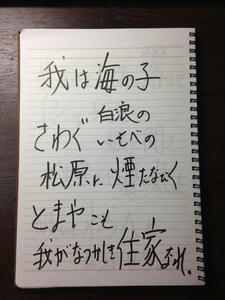 我は海の子
白浪の
さわぐいそべの
松原に煙たなびく
とまやこそ
我がなつかしき住家なれ。